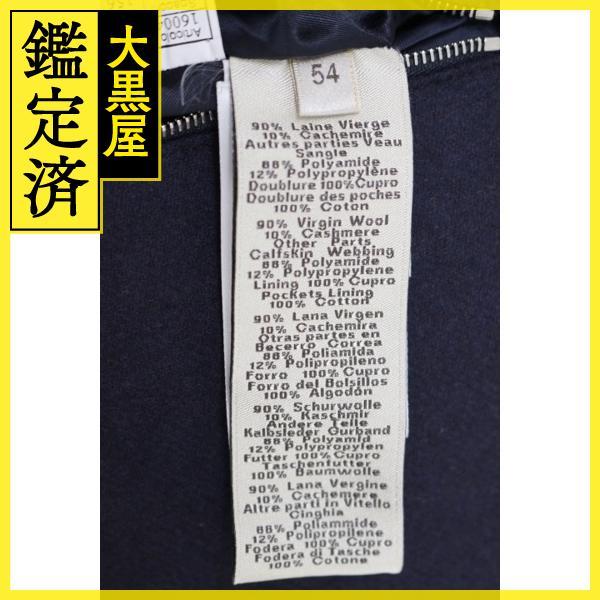 鑑定済
大黒屋
Articolo
1600
54
90% Laine Vierge
10% Cachemire
Autres parties Veau
Sangle
88% Polyamide
12% Polypropylène
Doublure 100% Cupro
Doublure des poches
100% Coton
90% Virgin Wool
10% Cashmere
Other Parts
Calfskin Webbing
88% Polyamide
12% Polypropylene
Lining 100% Cupro
Pockets Lining
100% Cotton
90% Lana Virgen
10% Cachemira
Otras partes en
Becerro Correa
88% Poliamida
12% Polipropileno
Forro 100% Cupro
Forro del Bolsillos
100% Algodón
90% Schurwolle
10% Kaschmir
Andere Teile
Kalbsleder Gurband
88% Polyamid
12% Polypropylen
Futter 100% Cupro
Taschenfutter
100% Baumwolle
90% Lana Vergine
10% Cachemere
Altre parti in Vitello
Cinghia
88% Poliammide
12% Polipropilene
Fodera 100% Cupro
Fodera di Tasche
100% Cotone